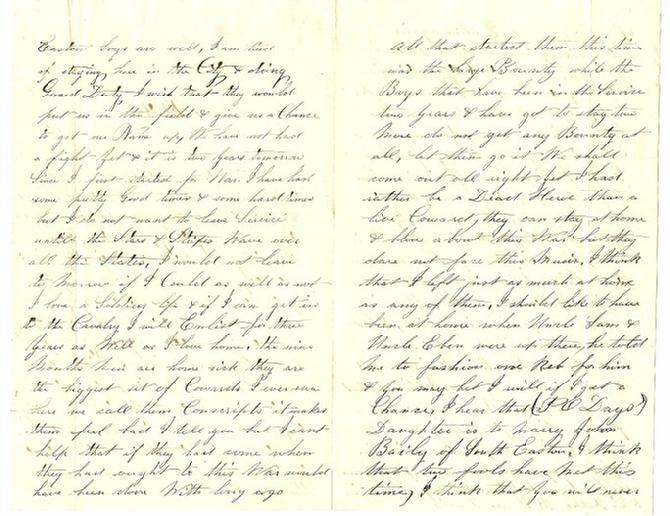 Easton boys are well, I am tired
of staying here in the City & doing
Guard Duty I wish that they would
put us in the field & give us a Chance
to get our Name up, We have not had
a fight yet & it is two years tomorrow
Since I first started for War. I have had
some pretty Good times & some hard times
but I do not want to leave Service
untill the Stars & Stripes Wave over
all the States, I would not leave
to Morrow if I Could as well as not
I love a Soldiers life & if I can get in
to the Cavalry I will Enlist for three
Years as Well as I love home, the nine
Months their are home sick they are
the biggest sit of Cowards I ever saw
here we call them Conscripts it makes
them feel bad I tell you but I cant
help that if they had come when
they had ought to this War would
have been done With long ago
All that started them this time
was the large Bounty while the
Boys that have been in the Service
two Years & have got to stay two
More do not get any Bounty at
all, let them go it We shall
come out all right yet I had
rather be a Dead Heroe than a
live Coward, they can stay at home
& blow about this War but they
dare not face the Music, I think
that I left just as much at home
as any of them, I should like to have
been at home when Uncle Sam &
Uncle Eben were up there, he told
me to fashion one Reb for him
& you may bet I will if I get a
Chance, I hear that (P C Days)
Daughter is to marry John
Baily of South Easton, I think
that two fools have Met this
time, I think that You will never